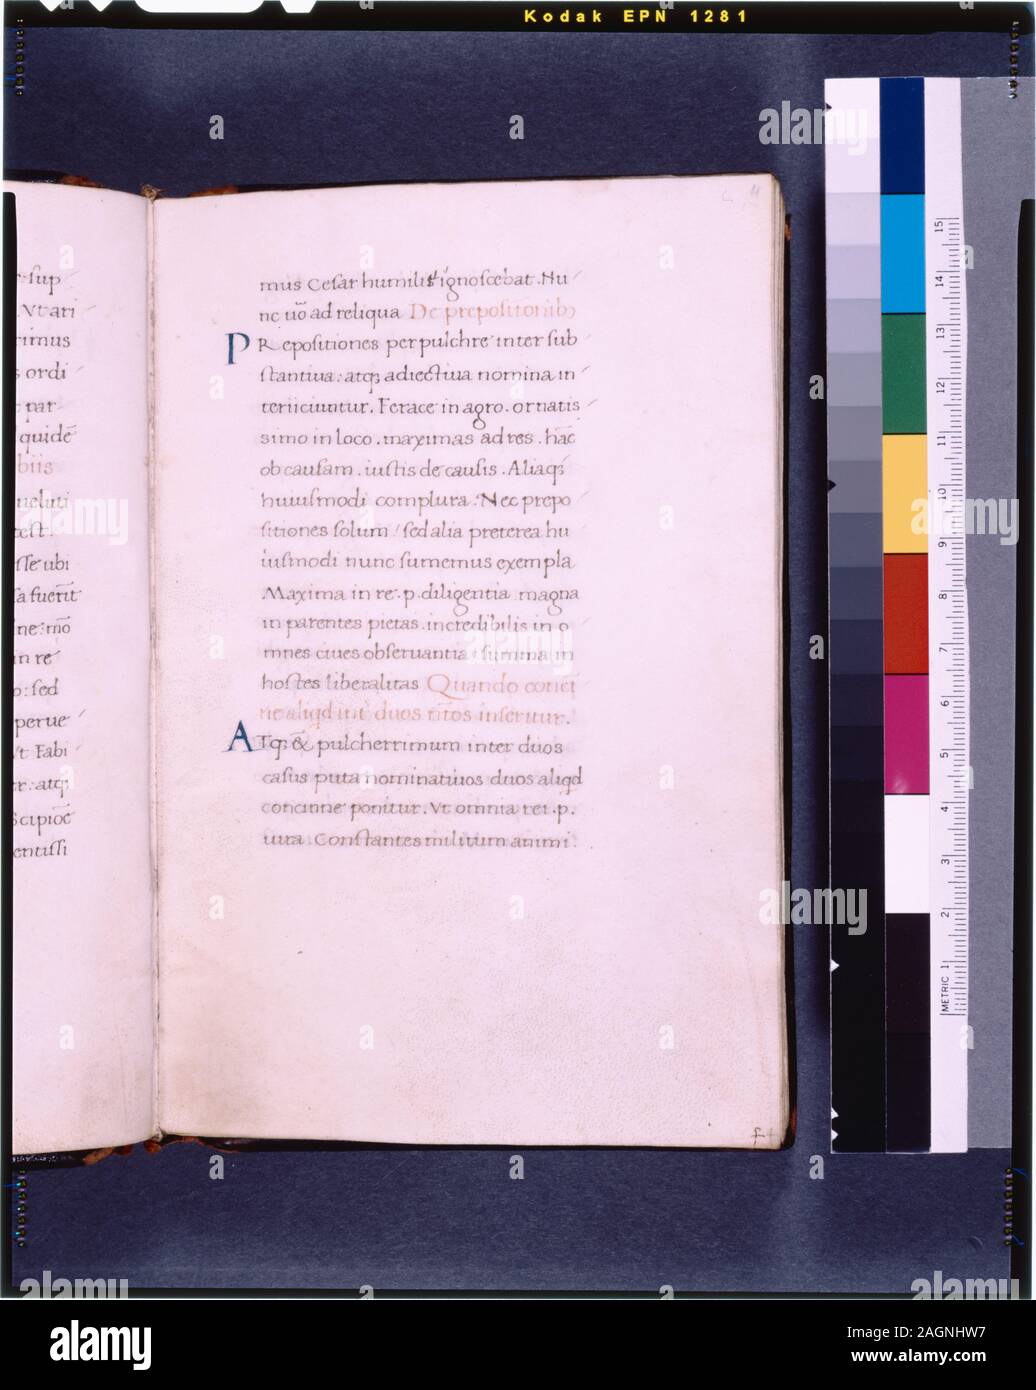 Kodak EPN 1281
sup
Vt ari
rimus
ordi
nar
quidē
biis
ueluti
est.
sse ubi
a fuerīt
ne: mō
in re
o: sed
perue
Vt Fabi
r: atq;
Scipioē
entissi
mus Cesar humilis ignoscebat. Nu
nc uō ad reliqua De prepositionib;
PRepositiones perpulchre inter sub
stantiua: atq; adiectiua nomina in
teriiciuntur. Ferace in agro. ornatis
simo in loco. maximas ad res. hāc
ob causam. iustis de causis. Aliaq;
huiusmodi complura. Nec prepo
sitiones solum / sed alia preterea hu
iusmodi nunc sumemus exempla
Maxima in re. p. diligentia. magna
in parentes pietas. incredibilis in o
mnes ciues obseruantia. summa in
hostes liberalitas Quando conci
ne aliqd int duos nr̄tos inseritur.
ATq; & pulcherrimum inter duos
casus puta nominatiuos duos aliqd
concinne ponitur. Vt omnia rei. p.
iura. Constantes militum animi
METRIC 1 2 3 4 5 6 7 8 9 10 11 12 13 14 15
alamy
Image ID: 2AGNHW7
www.alamy.com